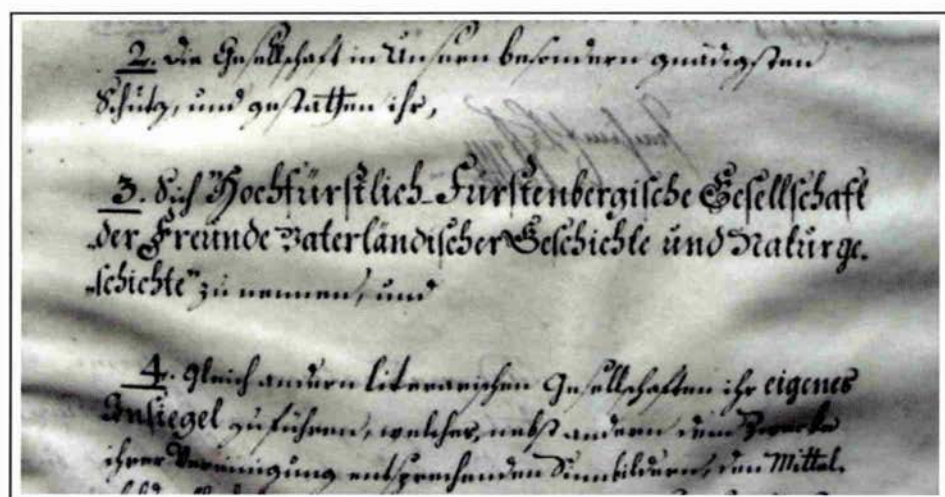 2. Die Gesellschaft in Unsern besondern gnädigsten
Schutz, und gestatten ihr,
3. Sich "Hochfürstlich-Fürstenbergische Gesellschaft
der Freunde Vaterländischer Geschichte und Naturge-
"schichte" zu nennen, und
4. Gleich andern literarischen Gesellschaften ihr eigenes
Insiegel zu führen, welches, nebst andern dem Zwecke
ihrer Vereinigung entsprechenden Sinnbildern, den Mittel-